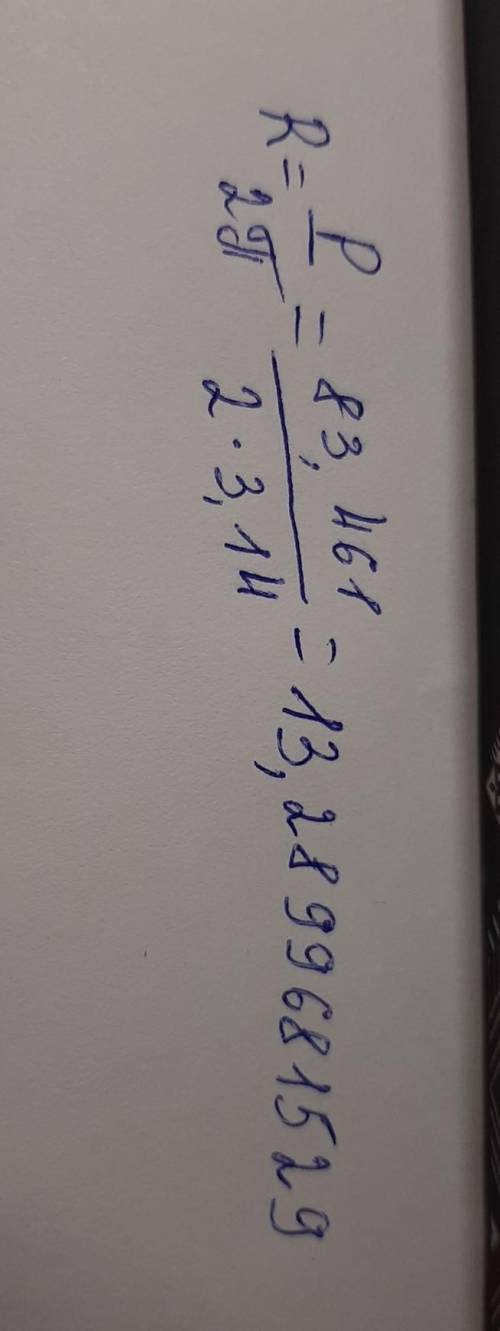 R = P / 2π = 83,461 / 2 · 3,14 = 13,2899681529